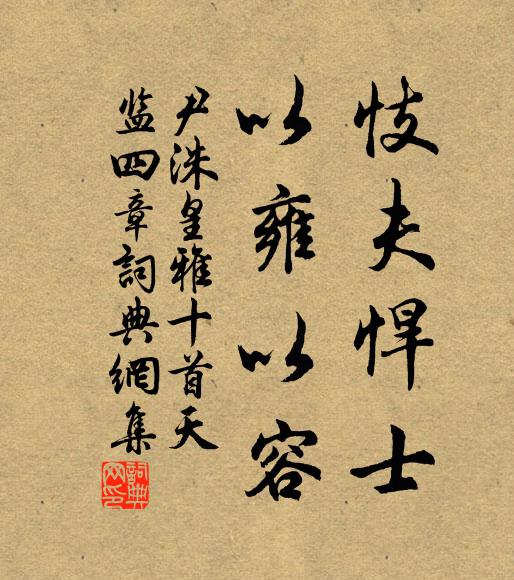 忮夫悍士
以雍以容
尹洙皇雅十首天
监四章詞典網集
詞典网印